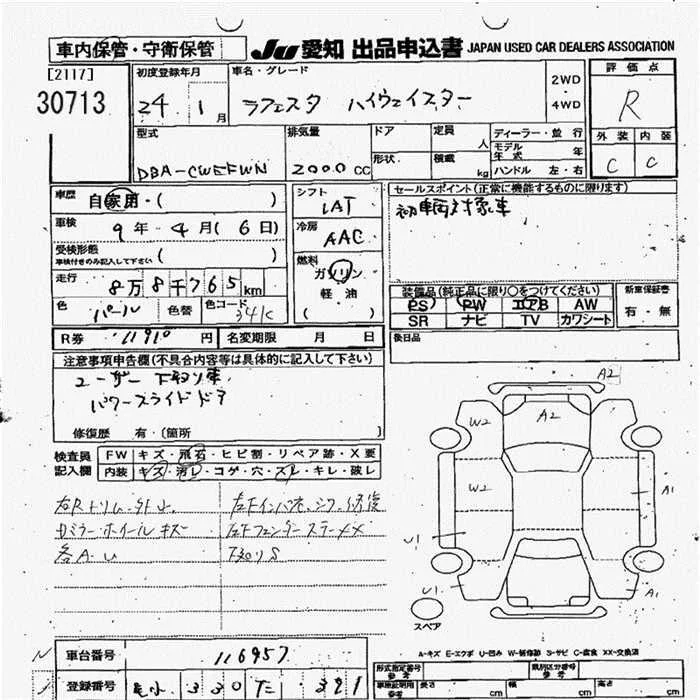 車内保管・守衛保管
JU 愛知 出品申込書 JAPAN USED CAR DEALERS ASSOCIATION
[2117]
30713
初度登録年月
24 1月
車名・グレード
ラフェスタ ハイウェイスター
2WD
・
4WD
評価点
R
外装 内装
C C
型式
DBA-CWEFWN
排気量
2000 cc
ドア
形状
定員
人
積載
kg
ディーラー・並行
モデル年式 年
ハンドル 左・右
車歴 自家用・( )
車検 9年 4月(6日)
受検形態
車検付きのみ記入して下さい ( )
走行 8万8千765km
色 パール 色替 色コード 34K
シフト
IAT
冷房
AAC
燃料
ガソリン
軽油
( )
セールスポイント(正常に機能するものに限ります)
初車両対象車
装備品(純正品に限り○をつけてください)
PS PW エアB AW
SR ナビ TV カワシート
新車保証書
有・無
後日品
R券 11910 円 名変期限 月 日
注意事項申告欄(不具合内容等は具体的に記入して下さい)
ユーザー下取り車
パワースライドドア
修復歴 有・(箇所 )
検査員
記入欄
FW キズ・飛石・ヒビ割・リペア跡・X要
内装 キズ・汚レ・コゲ・穴・スレ・キレ・破レ
ミラー・ホイールキズ
各A・U
下廻りS
A2
W2
A2
W2
A1
U1
U1
A1
スペア
A-キズ E-エクボ U-凹み W-補修跡 S-サビ C-腐食 XX-交換済
車台番号 116957
登録番号 330 321
形式指定番号
参考
類別区分番号
車庫証明用
参考
長さ cm 幅 cm 高さ cm